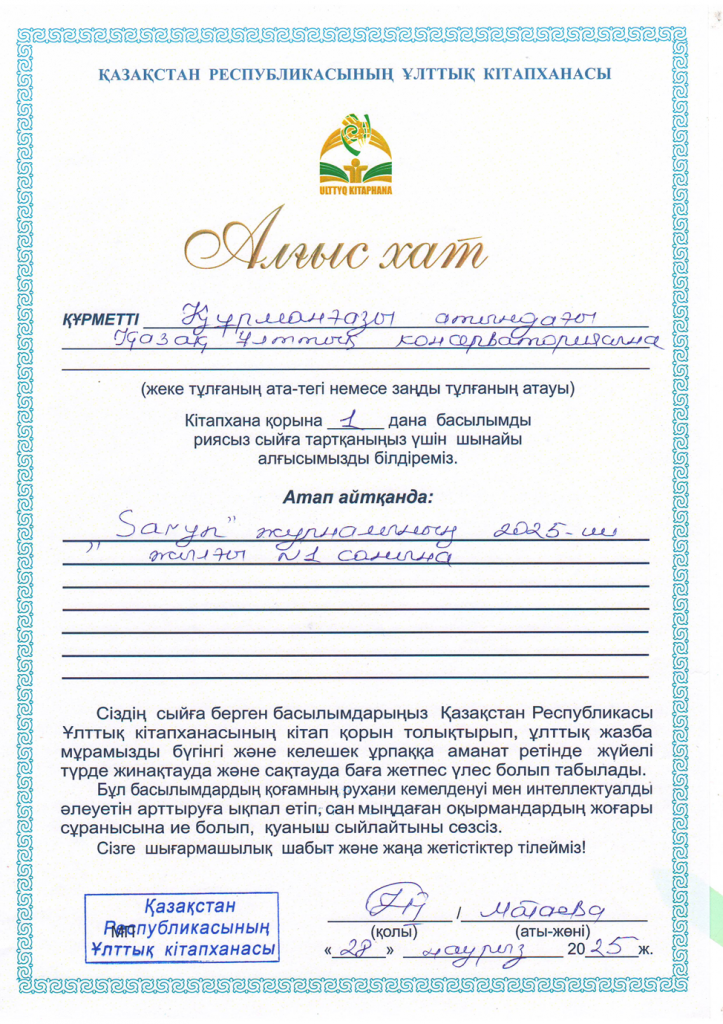 ҚАЗАҚСТАН РЕСПУБЛИКАСЫНЫҢ ҰЛТТЫҚ КІТАПХАНАСЫ
ULTTYQ KITAPHANA
Алғыс хат
ҚҰРМЕТТІ Құрманғазы атындағы
Қазақ Ұлттық консерваториясына
(жеке тұлғаның ата-тегі немесе заңды тұлғаның атауы)
Кітапхана қорына 1 дана басылымды
риясыз сыйға тартқаныңыз үшін шынайы
алғысымызды білдіреміз.
Атап айтқанда:
„Saryn” журналының 2025-ші
жылғы №1 санына
Сіздің сыйға берген басылымдарыңыз Қазақстан Республикасы
Ұлттық кітапханасының кітап қорын толықтырып, ұлттық жазба
мұрамызды бүгінгі және келешек ұрпаққа аманат ретінде жүйелі
түрде жинақтауда және сақтауда баға жетпес үлес болып табылады.
Бұл басылымдардың қоғамның рухани кемелденуі мен интеллектуалды
әлеуетін арттыруға ықпал етіп, сан мыңдаған оқырмандардың жоғары
сұранысына ие болып, қуаныш сыйлайтыны сөзсіз.
Сізге шығармашылық шабыт және жаңа жетістіктер тілейміз!
Қазақстан
Республикасының
Ұлттық кітапханасы
МП
/ Матаева
(қолы) (аты-жөні)
«28» наурыз 2025ж.